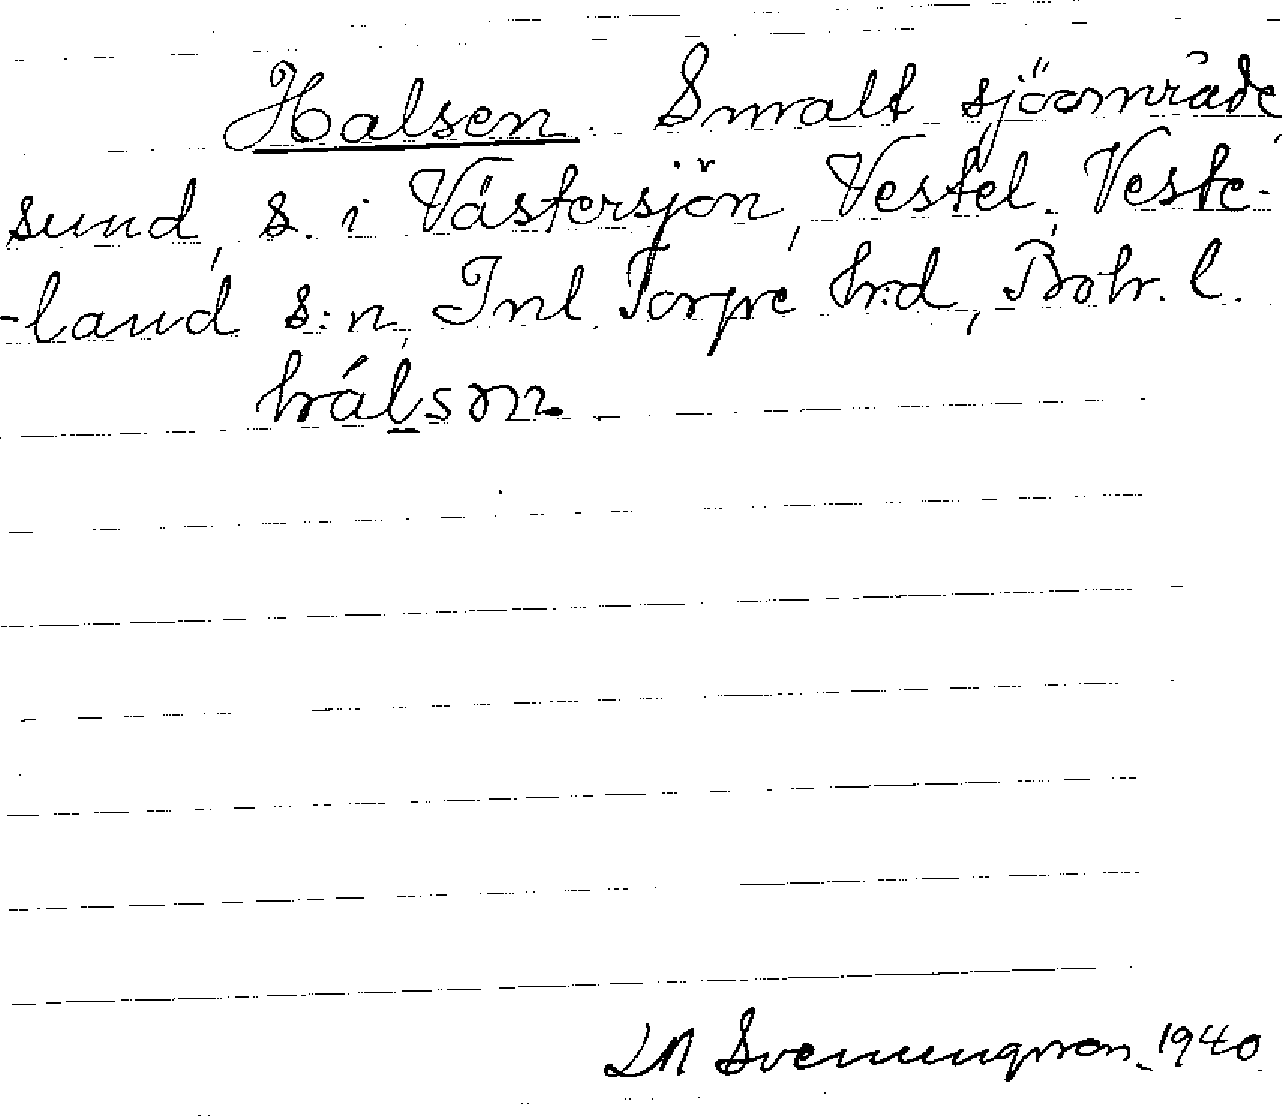 Halsen. Smalt sjöområde,
sund, s. i Västersjön, Vestel, Veste-
-land s:n, Inl. Torpe hrd, Boh. l.
hálsən.
Svenungsson. 1940